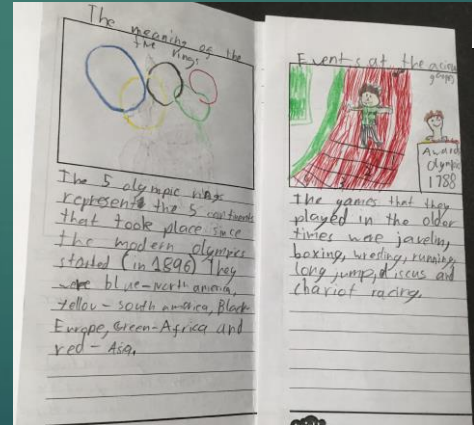 The meaning of the
five rings
The 5 olympic rings
represent the 5 continents
that took place since
the modern olympics
started (in 1896) They
were blue-north america,
yellow - south america, Black
Europe, Green-Africa and
red - Asia.
Events at the
games
Award
Olympic
1788
2
3
The games that they
played in the older
times were javelin,
boxing, wresling, running,
long jump, discus and
chariot racing.